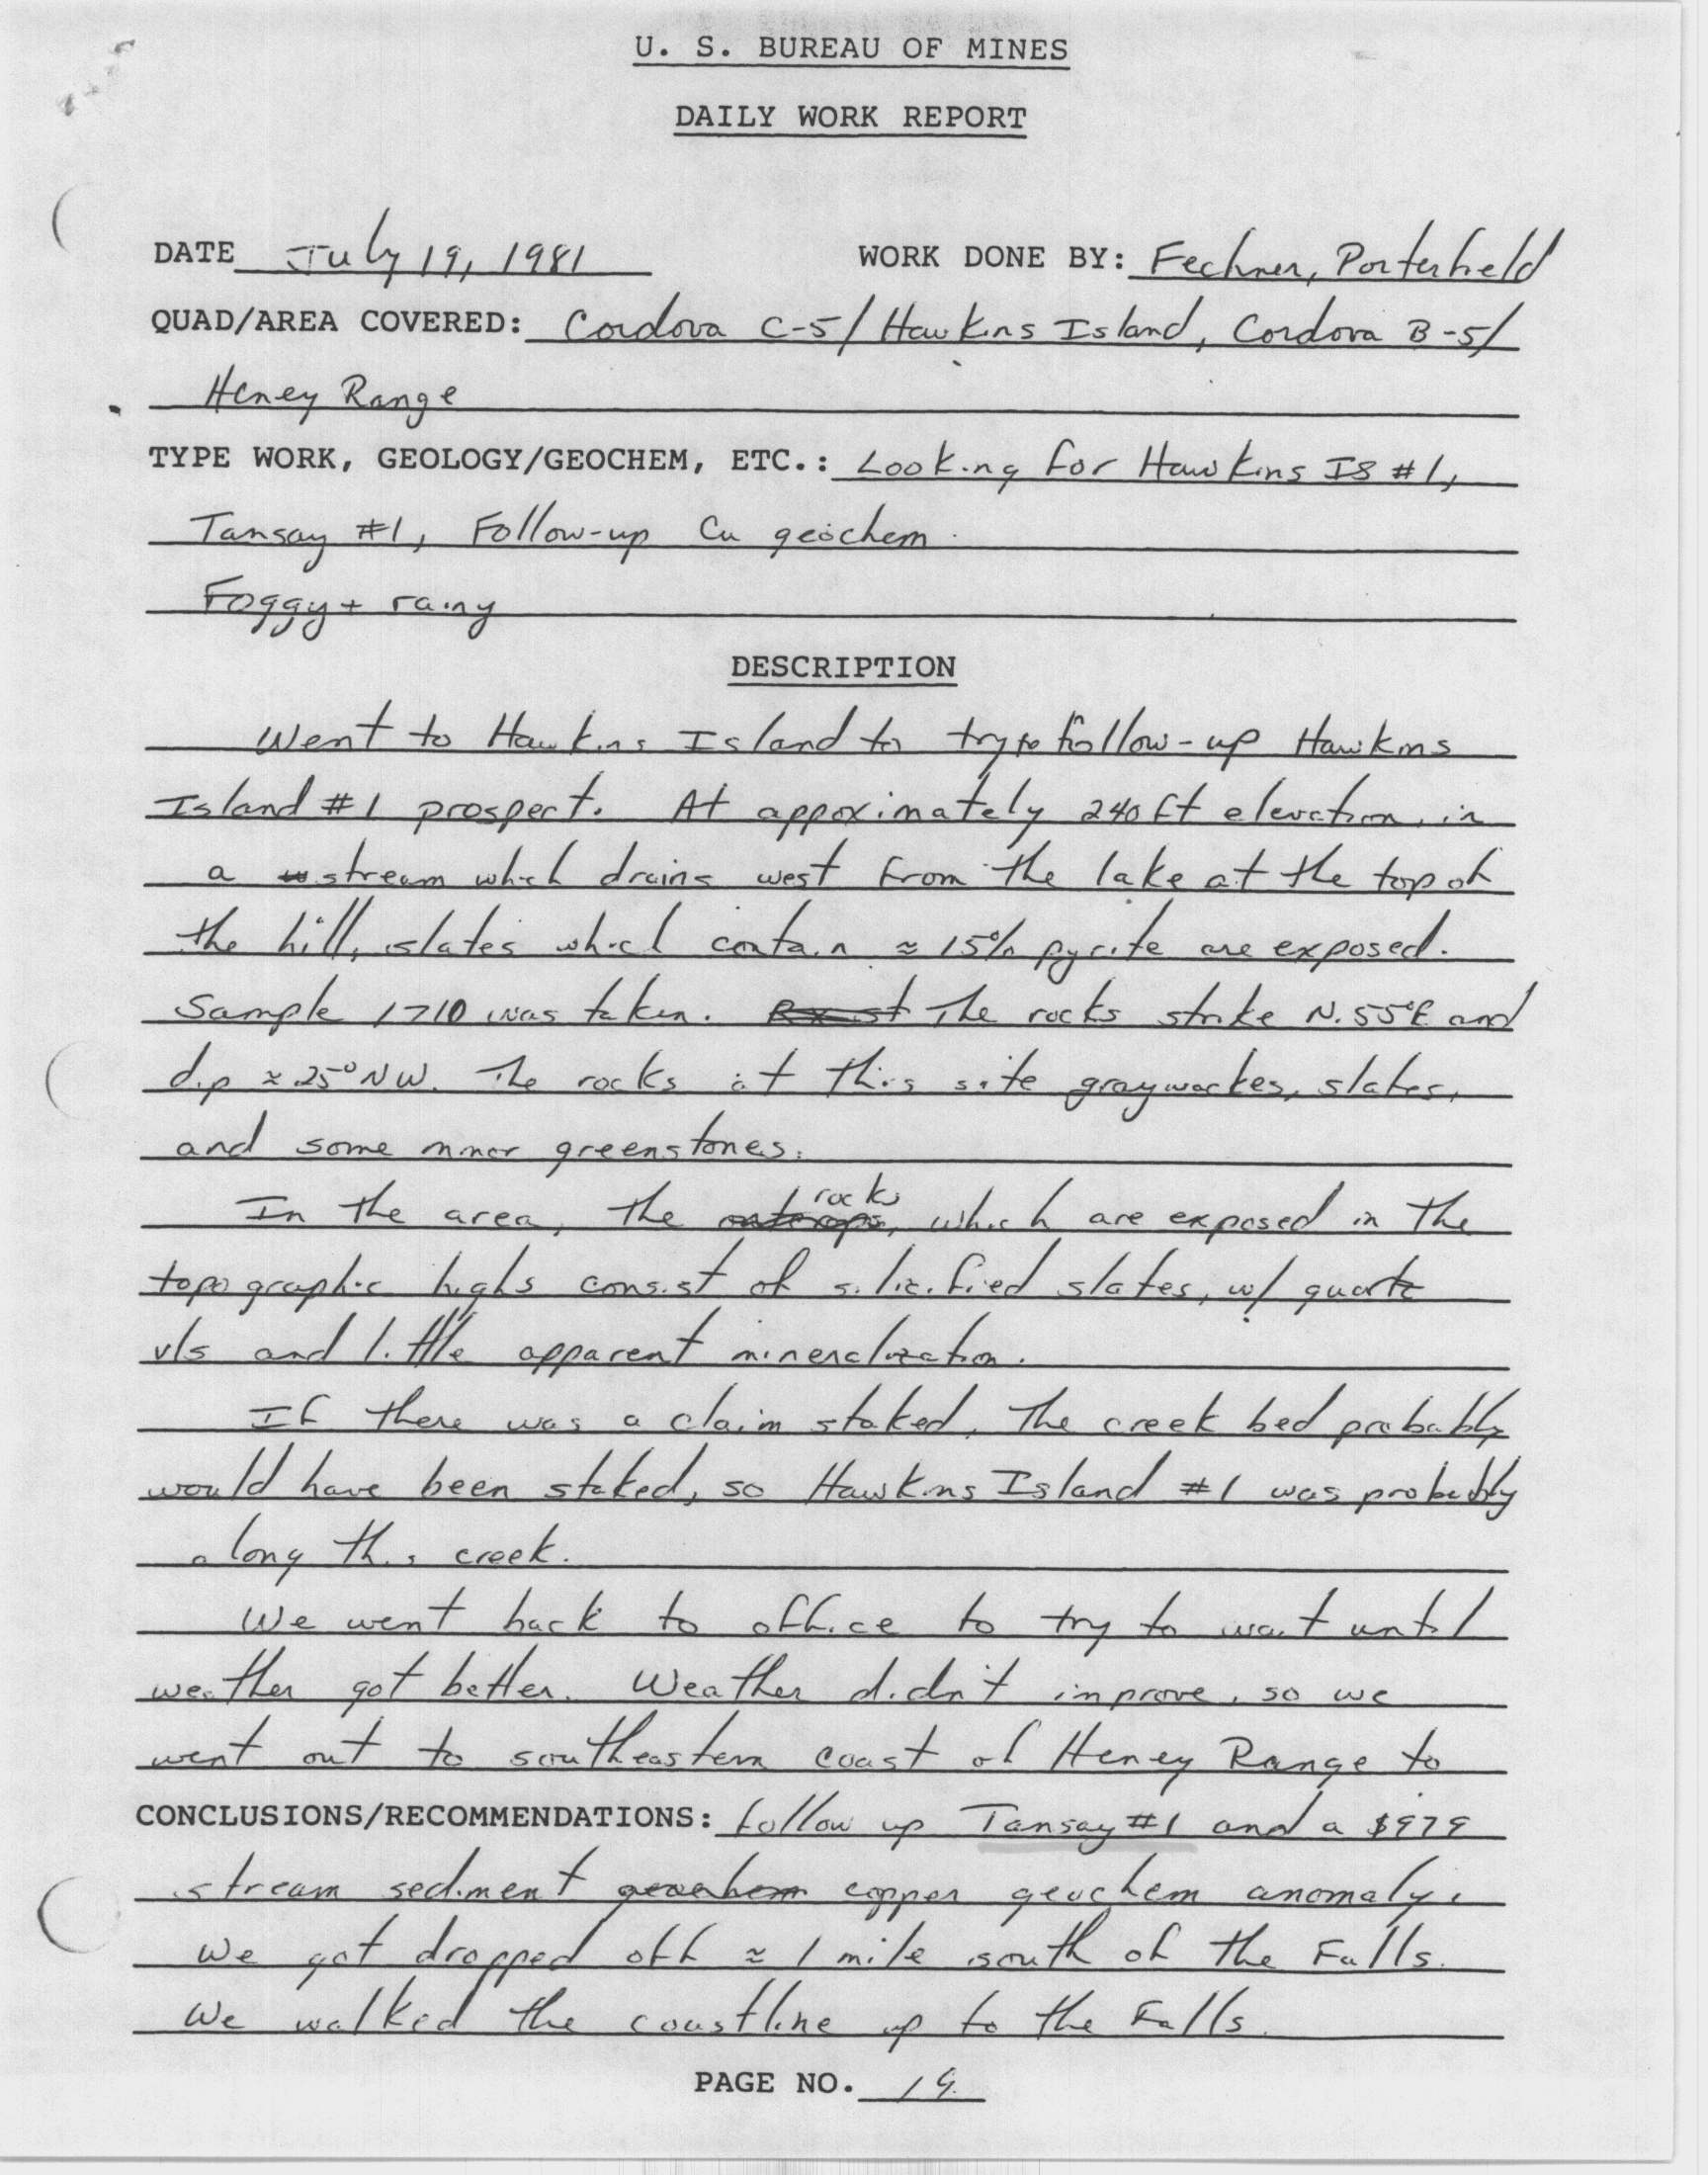 U. S. BUREAU OF MINES
DAILY WORK REPORT
DATE July 19, 1981 WORK DONE BY: Fechner, Porterfield
QUAD/AREA COVERED: Cordova C-5/Hawkins Island, Cordova B-5/
Heney Range
TYPE WORK, GEOLOGY/GEOCHEM, ETC.: Looking for Hawkins IS #1,
Tansay #1, Follow-up Cu geochem
Foggy + rainy
DESCRIPTION
Went to Hawkins Island to try to follow-up Hawkins
Island #1 prospect. At appoximately 240 ft elevation, in
a stream which drains west from the lake at the top of
the hill, slates which contain ≈ 15% pyrite are exposed.
Sample 1710 was taken. The rocks strike N.55°E and
dip ≈ 25° NW. The rocks at this site graywackes, slates,
and some minor greenstones.
In the area, the rocks, which are exposed in the
topographic highs consist of silicified slates, w/ quartz
vls and little apparent mineralization.
If there was a claim staked, the creek bed probably
would have been staked, so Hawkins Island #1 was probably
along this creek.
We went back to office to try to wait until
weather got better. Weather didn't improve, so we
went out to southeastern coast of Heney Range to
CONCLUSIONS/RECOMMENDATIONS: follow up Tansay #1 and a
stream sediment copper geochem anomaly.
We got dropped off ≈ 1 mile south of the Falls.
We walked the coastline up to the Falls.
PAGE NO. 19